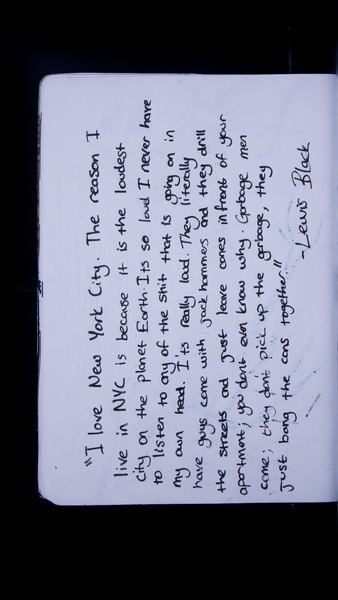 "I love New York City. The reason I
live in NYC is because it is the loudest
city on the planet Earth. Its so loud I never have
to listen to any of the shit that is going on in
my own head. I'ts really loud. They literally
have guys come with jack hammers and they drill
the streets and just leave cones infront of your
apartment; you dont even know why. Garbage men
come; they dont pick up the garbage, they
just bang the cans together."
-Lewis Black